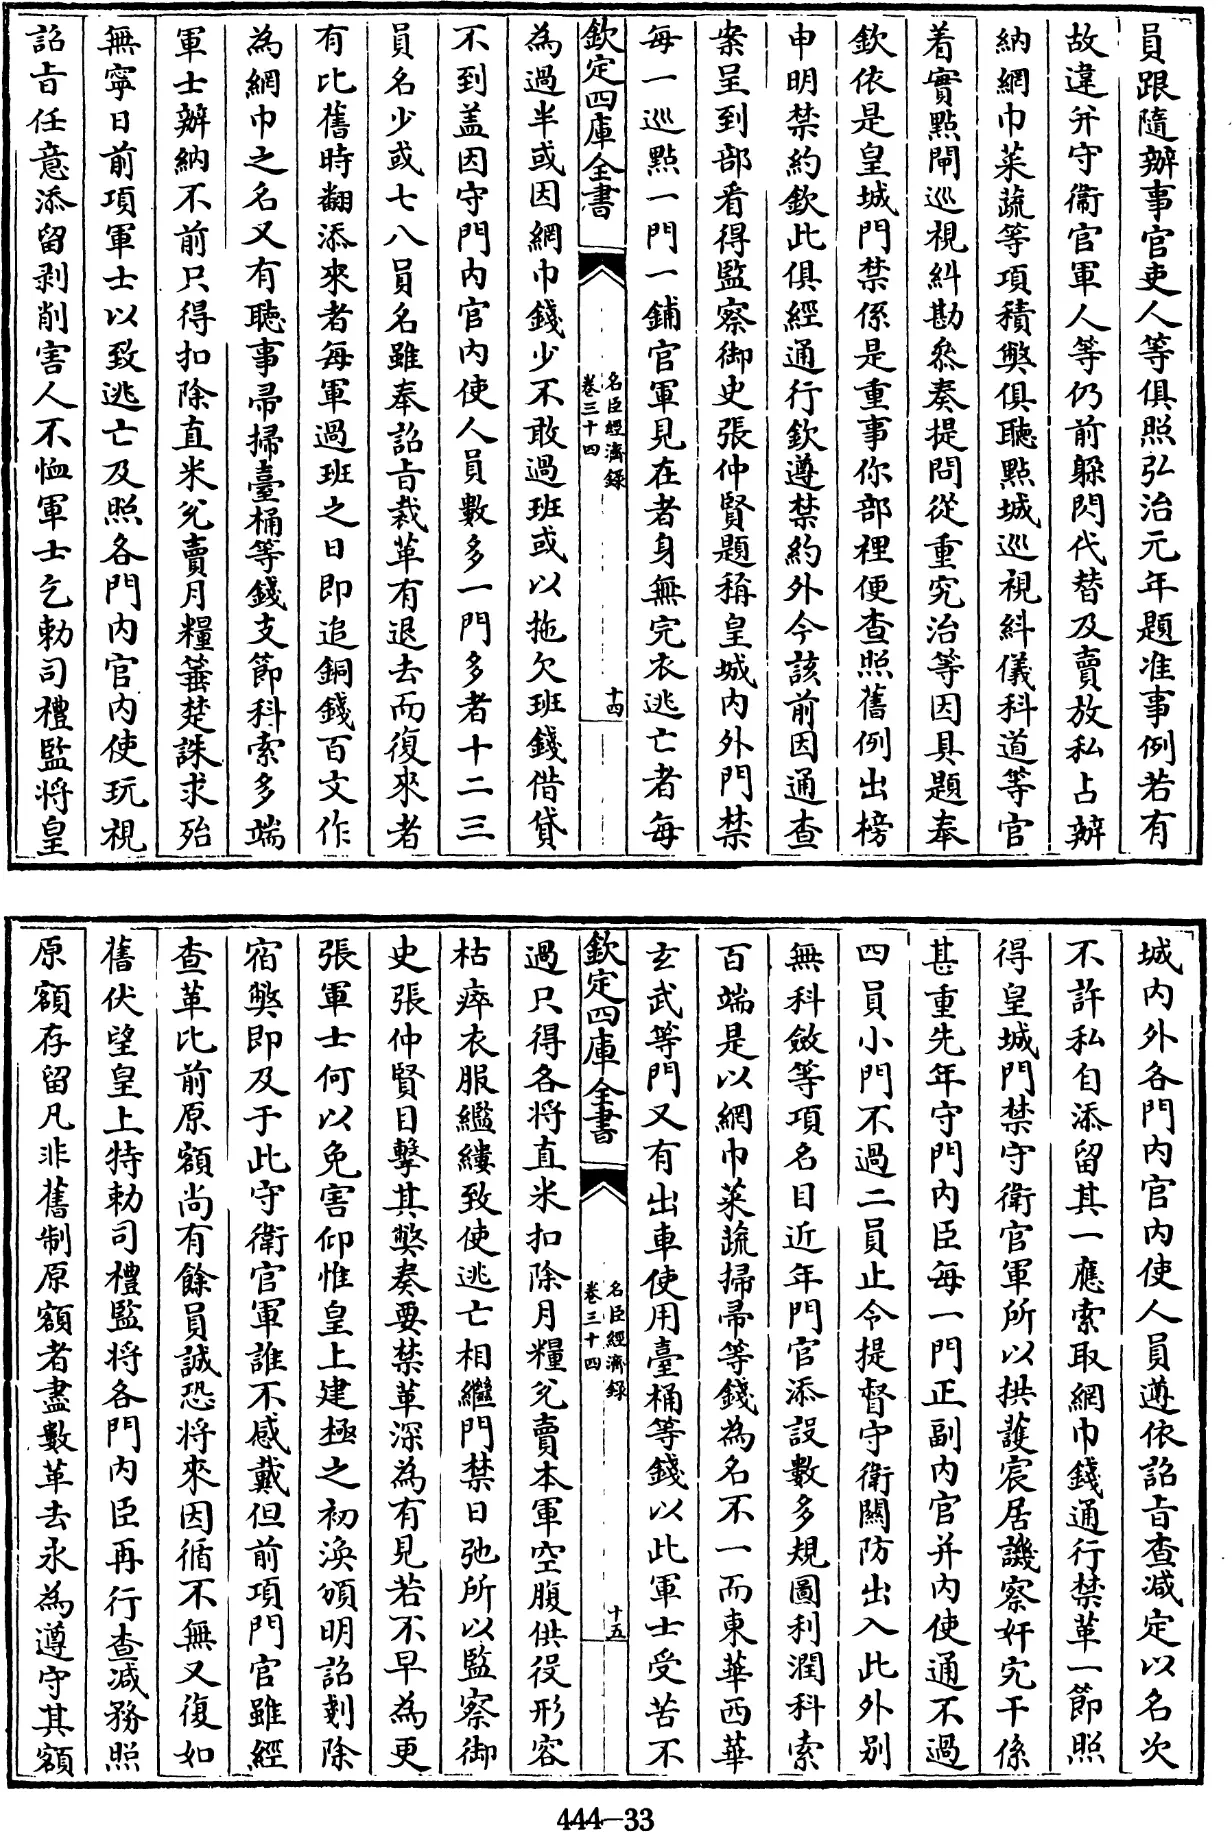 員跟隨辦事官吏人等俱照弘治元年題准事例若有
故違并守衞官軍人等仍前躲閃代替及賣放私占辦
納網巾菜蔬等項積弊俱聽點城巡視糾儀科道等官
着實點閘巡視糾勘叅奏提問從重究治等因具題奉
欽依是皇城門禁係是重事你部裡便查照舊例出榜
申明禁約欽此俱經通行欽遵禁約外今該前因通查
案呈到部看得監察御史張仲賢題稱皇城內外門禁
每一巡點一門一鋪官軍見在者身無完衣逃亡者每
欽定四庫全書
名臣經濟錄
卷三十四
十四
為過半或因網巾錢少不敢過班或以拖欠班錢借貸
不到盖因守門內官內使人員數多一門多者十二三
員名少或七八員名雖奉詔旨裁革有退去而復來者
有比舊時翻添來者每軍過班之日即追銅錢百文作
為網巾之名又有聽事帚掃臺桶等錢支節科索多端
軍士辦納不前只得扣除直米兊賣月糧箠楚誅求殆
無寧日前項軍士以致逃亡及照各門內官內使玩視
詔旨任意添留剥削害人不恤軍士乞勅司禮監將皇
城內外各門內官內使人員遵依詔旨查減定以名次
不許私自添留其一應索取網巾錢通行禁革一節照
得皇城門禁守衛官軍所以拱護宸居譏察奸宄干係
甚重先年守門內臣每一門正副內官并內使通不過
四員小門不過二員止令提督守衛關防出入此外別
無科斂等項名目近年門官添設數多規圖利潤科索
百端是以網巾菜蔬掃帚等錢為名不一而東華西華
玄武等門又有出車使用臺桶等錢以此軍士受苦不
欽定四庫全書
名臣經濟錄
卷三十四
十五
過只得各將直米扣除月糧兊賣本軍空腹供役形容
枯瘁衣服繿縷致使逃亡相繼門禁日弛所以監察御
史張仲賢目擊其弊奏要禁革深為有見若不早為更
張軍士何以免害仰惟皇上建極之初渙頒明詔剗除
宿弊即及于此守衛官軍誰不感戴但前項門官雖經
查革比前原額尚有餘員誠恐將來因循不無又復如
舊伏望皇上特勅司禮監將各門內臣再行查減務照
原額存留凡非舊制原額者盡數革去永為遵守其額
444-33